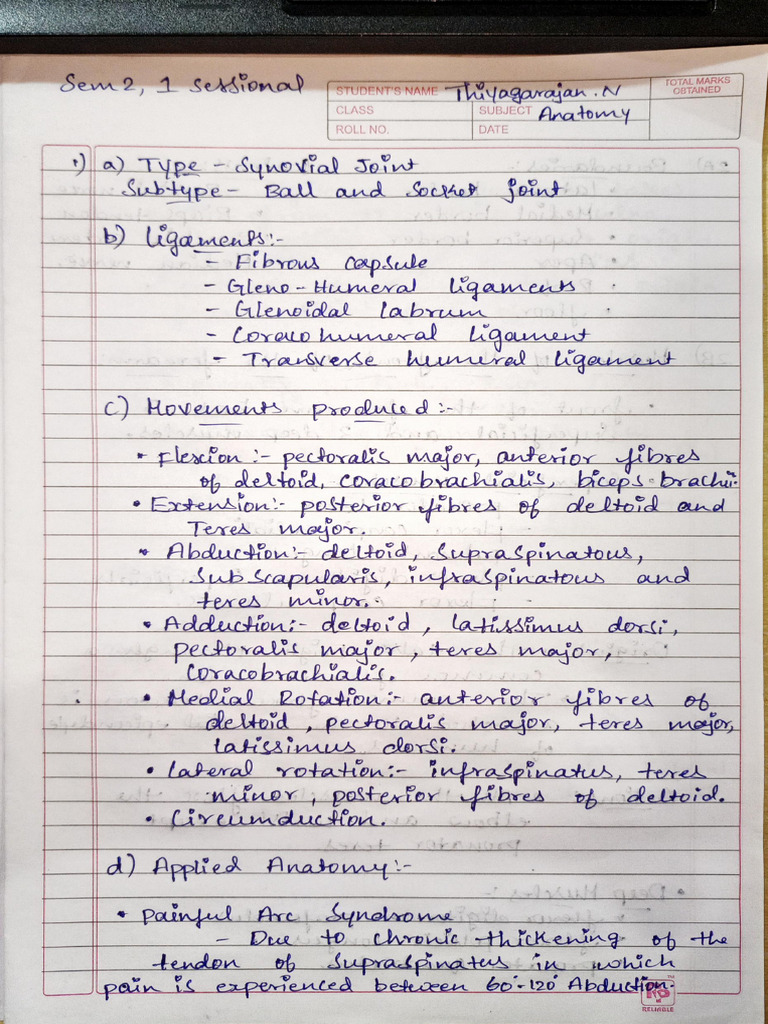 Sem 2, 1 sessional
STUDENT'S NAME Thiyagarajan.N
TOTAL MARKS OBTAINED
CLASS SUBJECT Anatomy
ROLL NO. DATE
1) a) Type - Synovial Joint
Subtype - Ball and Socket joint
b) Ligaments:-
- Fibrous capsule
- Gleno-Humeral ligaments
- Glenoidal Labrum
- Coraco humeral ligament
- Transverse humeral ligament
c) Movements produced:-
• Flexion:- pectoralis major, anterior fibres
of deltoid, coracobrachialis, biceps brachii.
• Extension:- posterior fibres of deltoid and
Teres major.
• Abduction:- deltoid, Supraspinatous,
Subscapularis, infraspinatous and
teres minor.
• Adduction:- deltoid, latissimus dorsi,
pectoralis major, teres major,
coracobrachialis.
• Medial Rotation:- anterior fibres of
deltoid, pectoralis major, teres major,
latissimus dorsi.
• lateral rotation:- infraspinatus, teres
minor, posterior fibres of deltoid.
• Circumduction.
d) Applied Anatomy:-
• Painful Arc Syndrome
- Due to chronic thickening of the
tendon of Supraspinatus in which
pain is experienced between 60°-120° Abduction.
RELIABLE